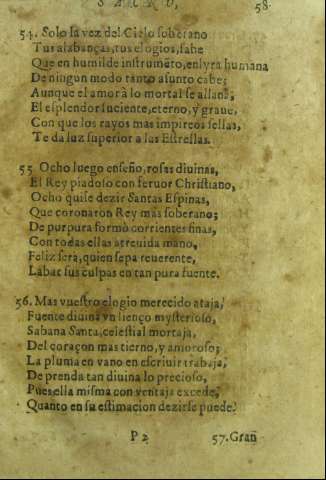 S A C R O, 58.
54. Solo la vez del Cielo soberano
Tus alabanças, tus elogios, sabe
Que en humilde instrumẽto, en lyra humana
De ningun modo tanto asunto cabe;
Aunque el amor à lo mortal se allane,
El esplendor luciente, eterno, y graue,
Con que los rayos mas impireos sellas,
Te da luz superior a las Estrellas.
55 Ocho luego enseño, rosas diuinas,
El Rey piadoso con feruor Christiano,
Ocho quise dezir Santas Espinas,
Que coronaron Rey mas soberano;
De purpura formò corrientes finas,
Con todas ellas atreuida mano,
Feliz serà, quien sepa reuerente,
Labar sus culpas en tan pura fuente.
56. Mas vuestro elogio merecido ataja,
Fuente diuina vn lienço mysterioso,
Sabana Santa, celestial mortaja,
Del coraçon mas tierno, y amoroso;
La pluma en vano en escriuir trabaja,
De prenda tan diuina lo precioso,
Pues ella misma con ventaja excede,
Quanto en su estimacion dezirse puede.
P 2 57. Gran